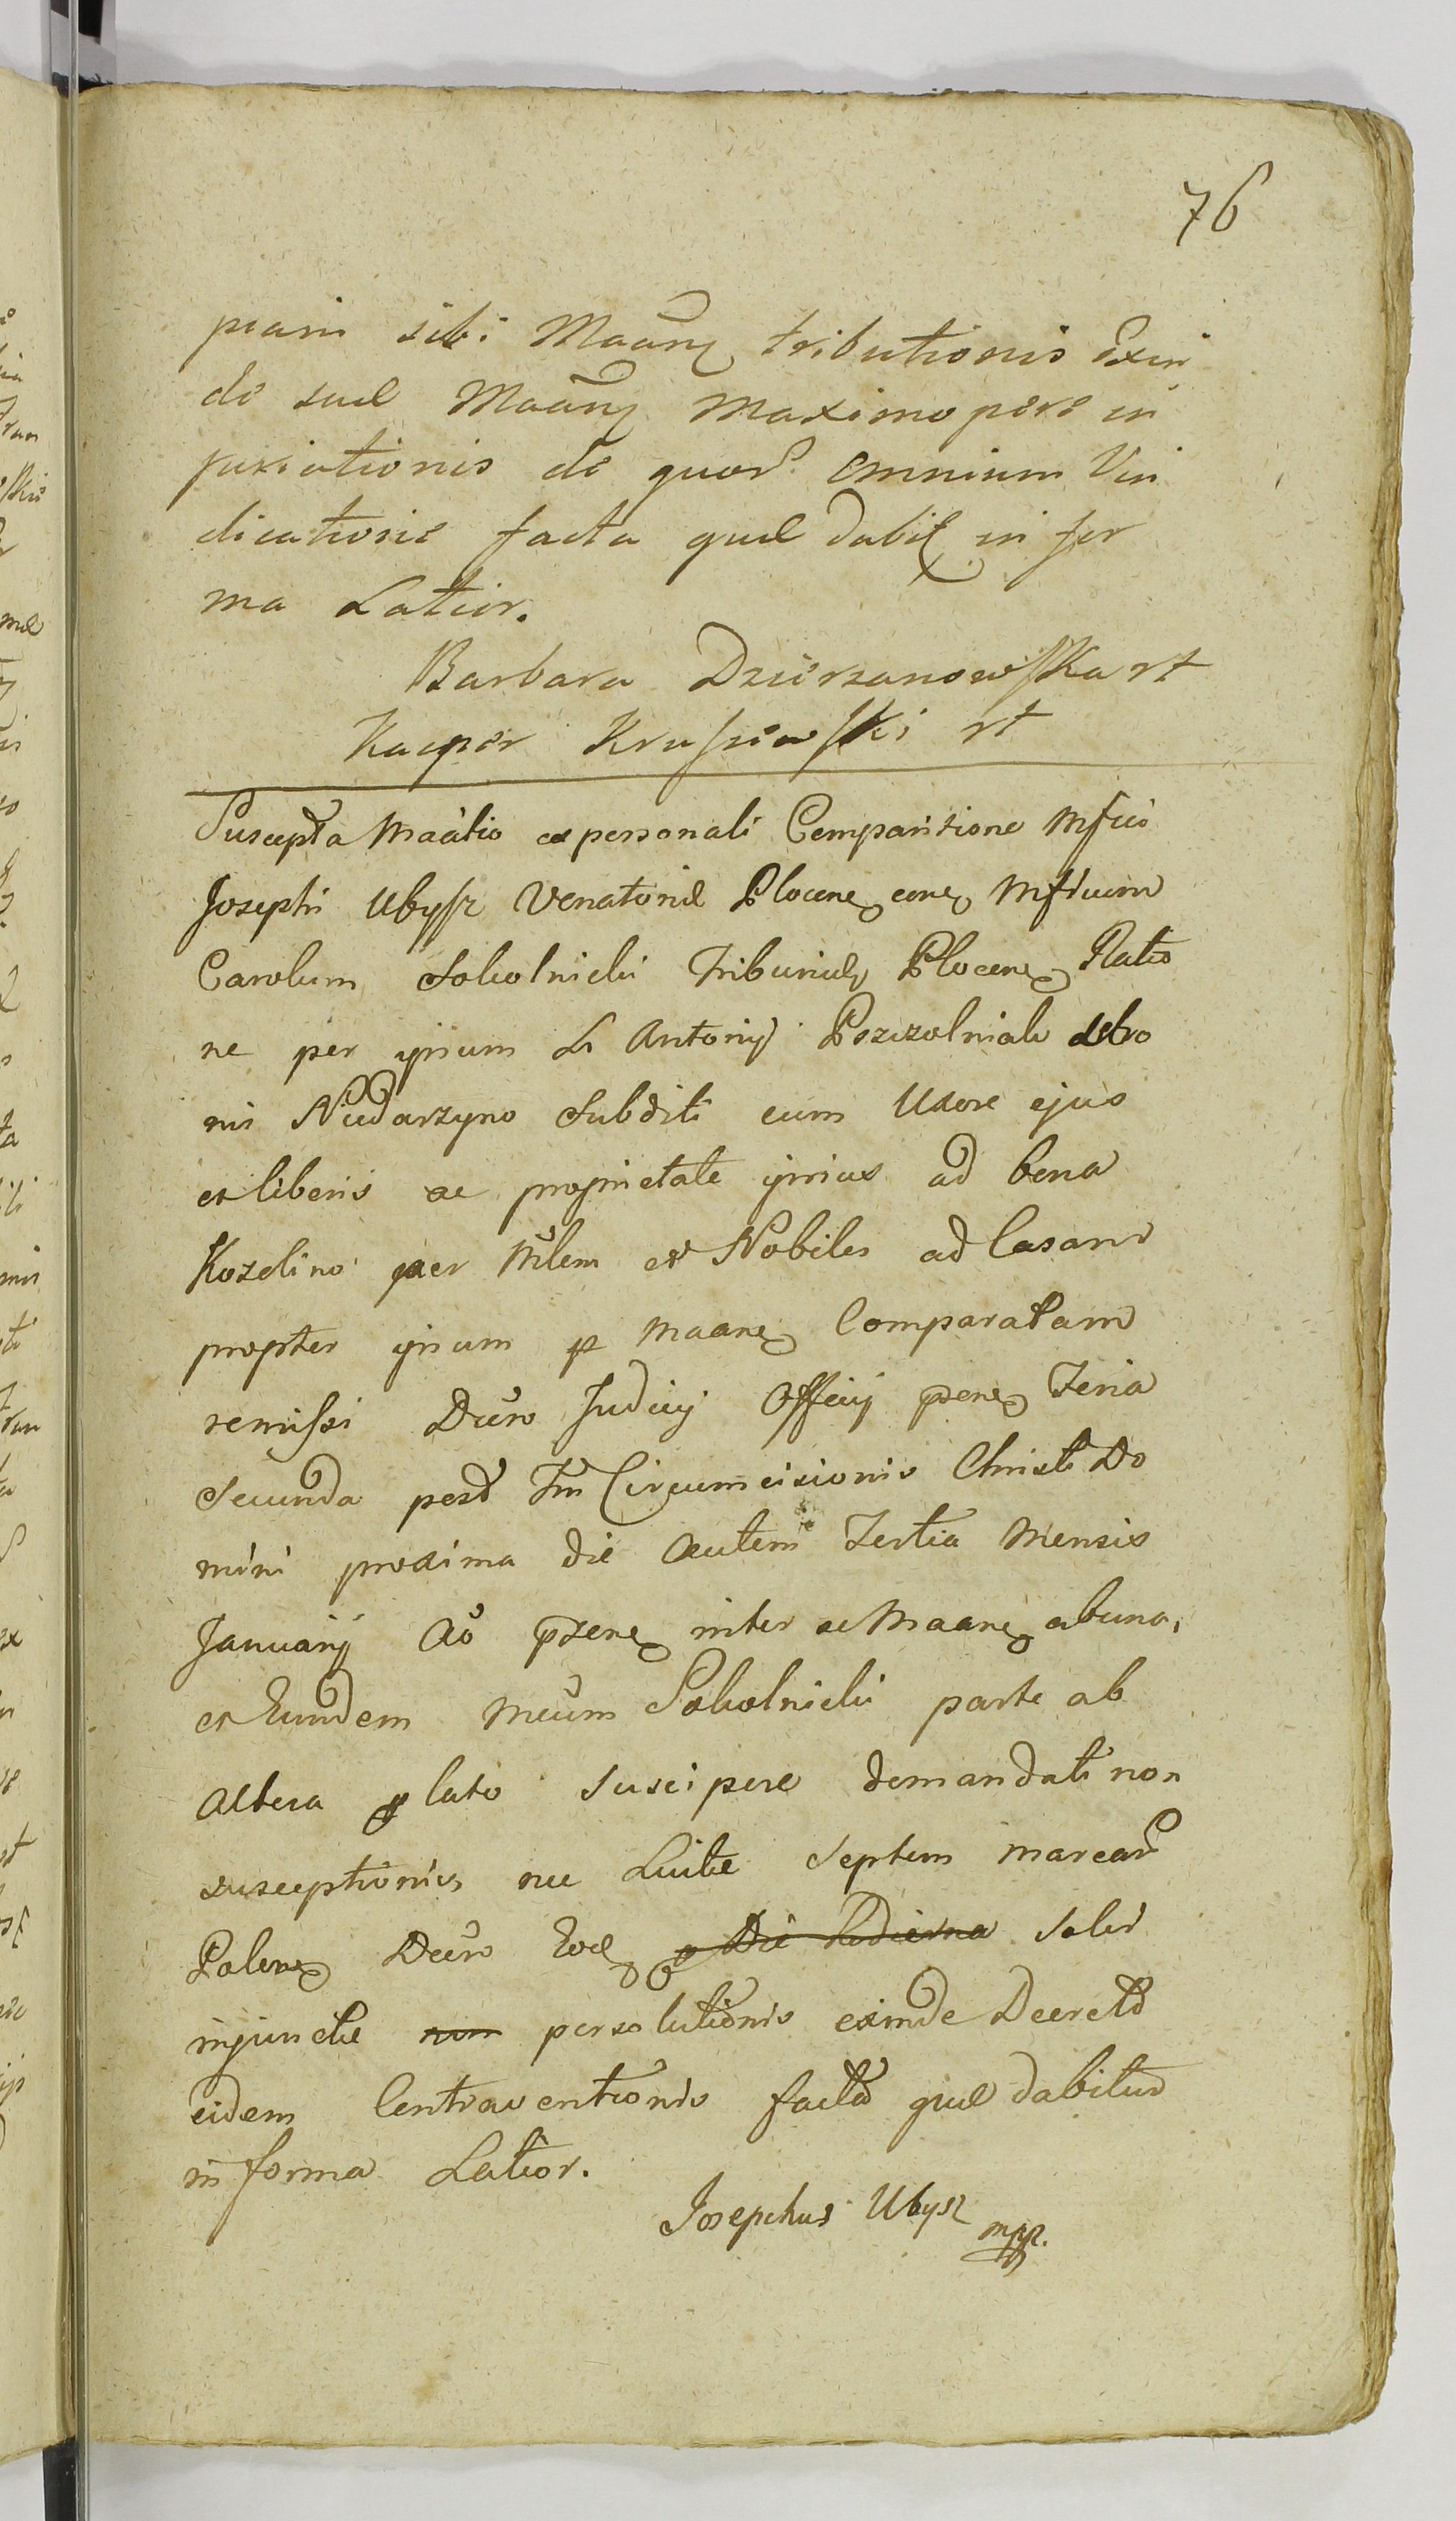 76
piam sibi Maang tributionis Exin
de suæ Maang Maximopere in
juriationis de quor. omnium Vin
dicatione facta quæ dabit in for
ma Latior.
Barbara Dzierzanowska rt
Kacper Krusziewski rt
Suscepta Maatio ex personali Comparitione Mfici
Josephi Ubysz Venatoris Plocen contra Mficum
Carolum Sokolnicki Tribunid Plocen Ratio
ne per ipsum Li Antonij Pszczolniak de bo
nis Niedarzyno Subditi cum Uxore ejus
et liberis ac proprietate ipsius ad bona
Kozelino per Mlem et Nobiles ad Casam
propter ipsum p Maane Comparatam
remissi Dero Judicij Officij psene Feria
Secunda post Fm Circumcisionis Christi Do
mini proxima die autem Tertia Mensis
Januarij Ao pzene inter ac Maane ab una,
et Eundem Mcum Sokolnicki parte ab
altera lato suscipere demandati non
susceptionis nec Luitæ Septem marcar
Polone Decro Eod die hodierna solv
injunctæ non persolutionis exinde Decreto
eidem Contraventionis facta quæ dabitur
in forma Latior.
Josephus Ubysz
mpp.